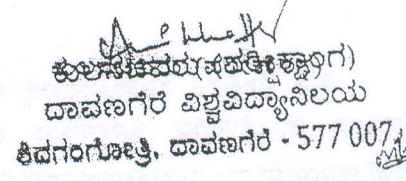 ಕುಲಸಚಿವರು(ಪರೀಕ್ಷಾಂಗ)
ದಾವಣಗೆರೆ ವಿಶ್ವವಿದ್ಯಾನಿಲಯ
ಶಿವಗಂಗೋತ್ರಿ, ದಾವಣಗೆರೆ - 577 007